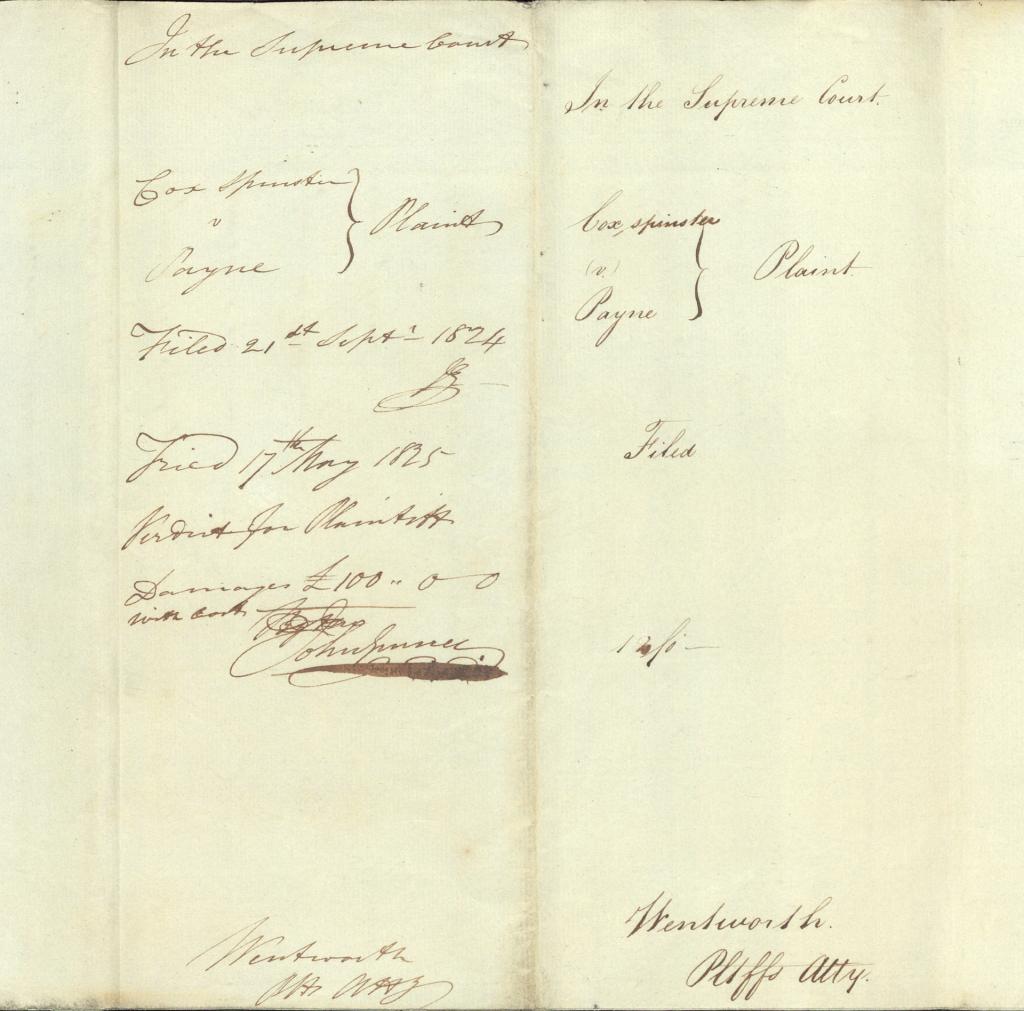 In the Supreme Court
Cox spinster
v
Payne
Plaint
Filed 21st Septr 1824
Tried 17th May 1825
Verdict for Plaintiff
Damages £100 " 0 - 0
with costs
John
Wentworth
Atty
In the Supreme Court.
Cox, spinster
(v.)
Payne
Plaint
Filed
Wentworth.
Pltffs Atty.